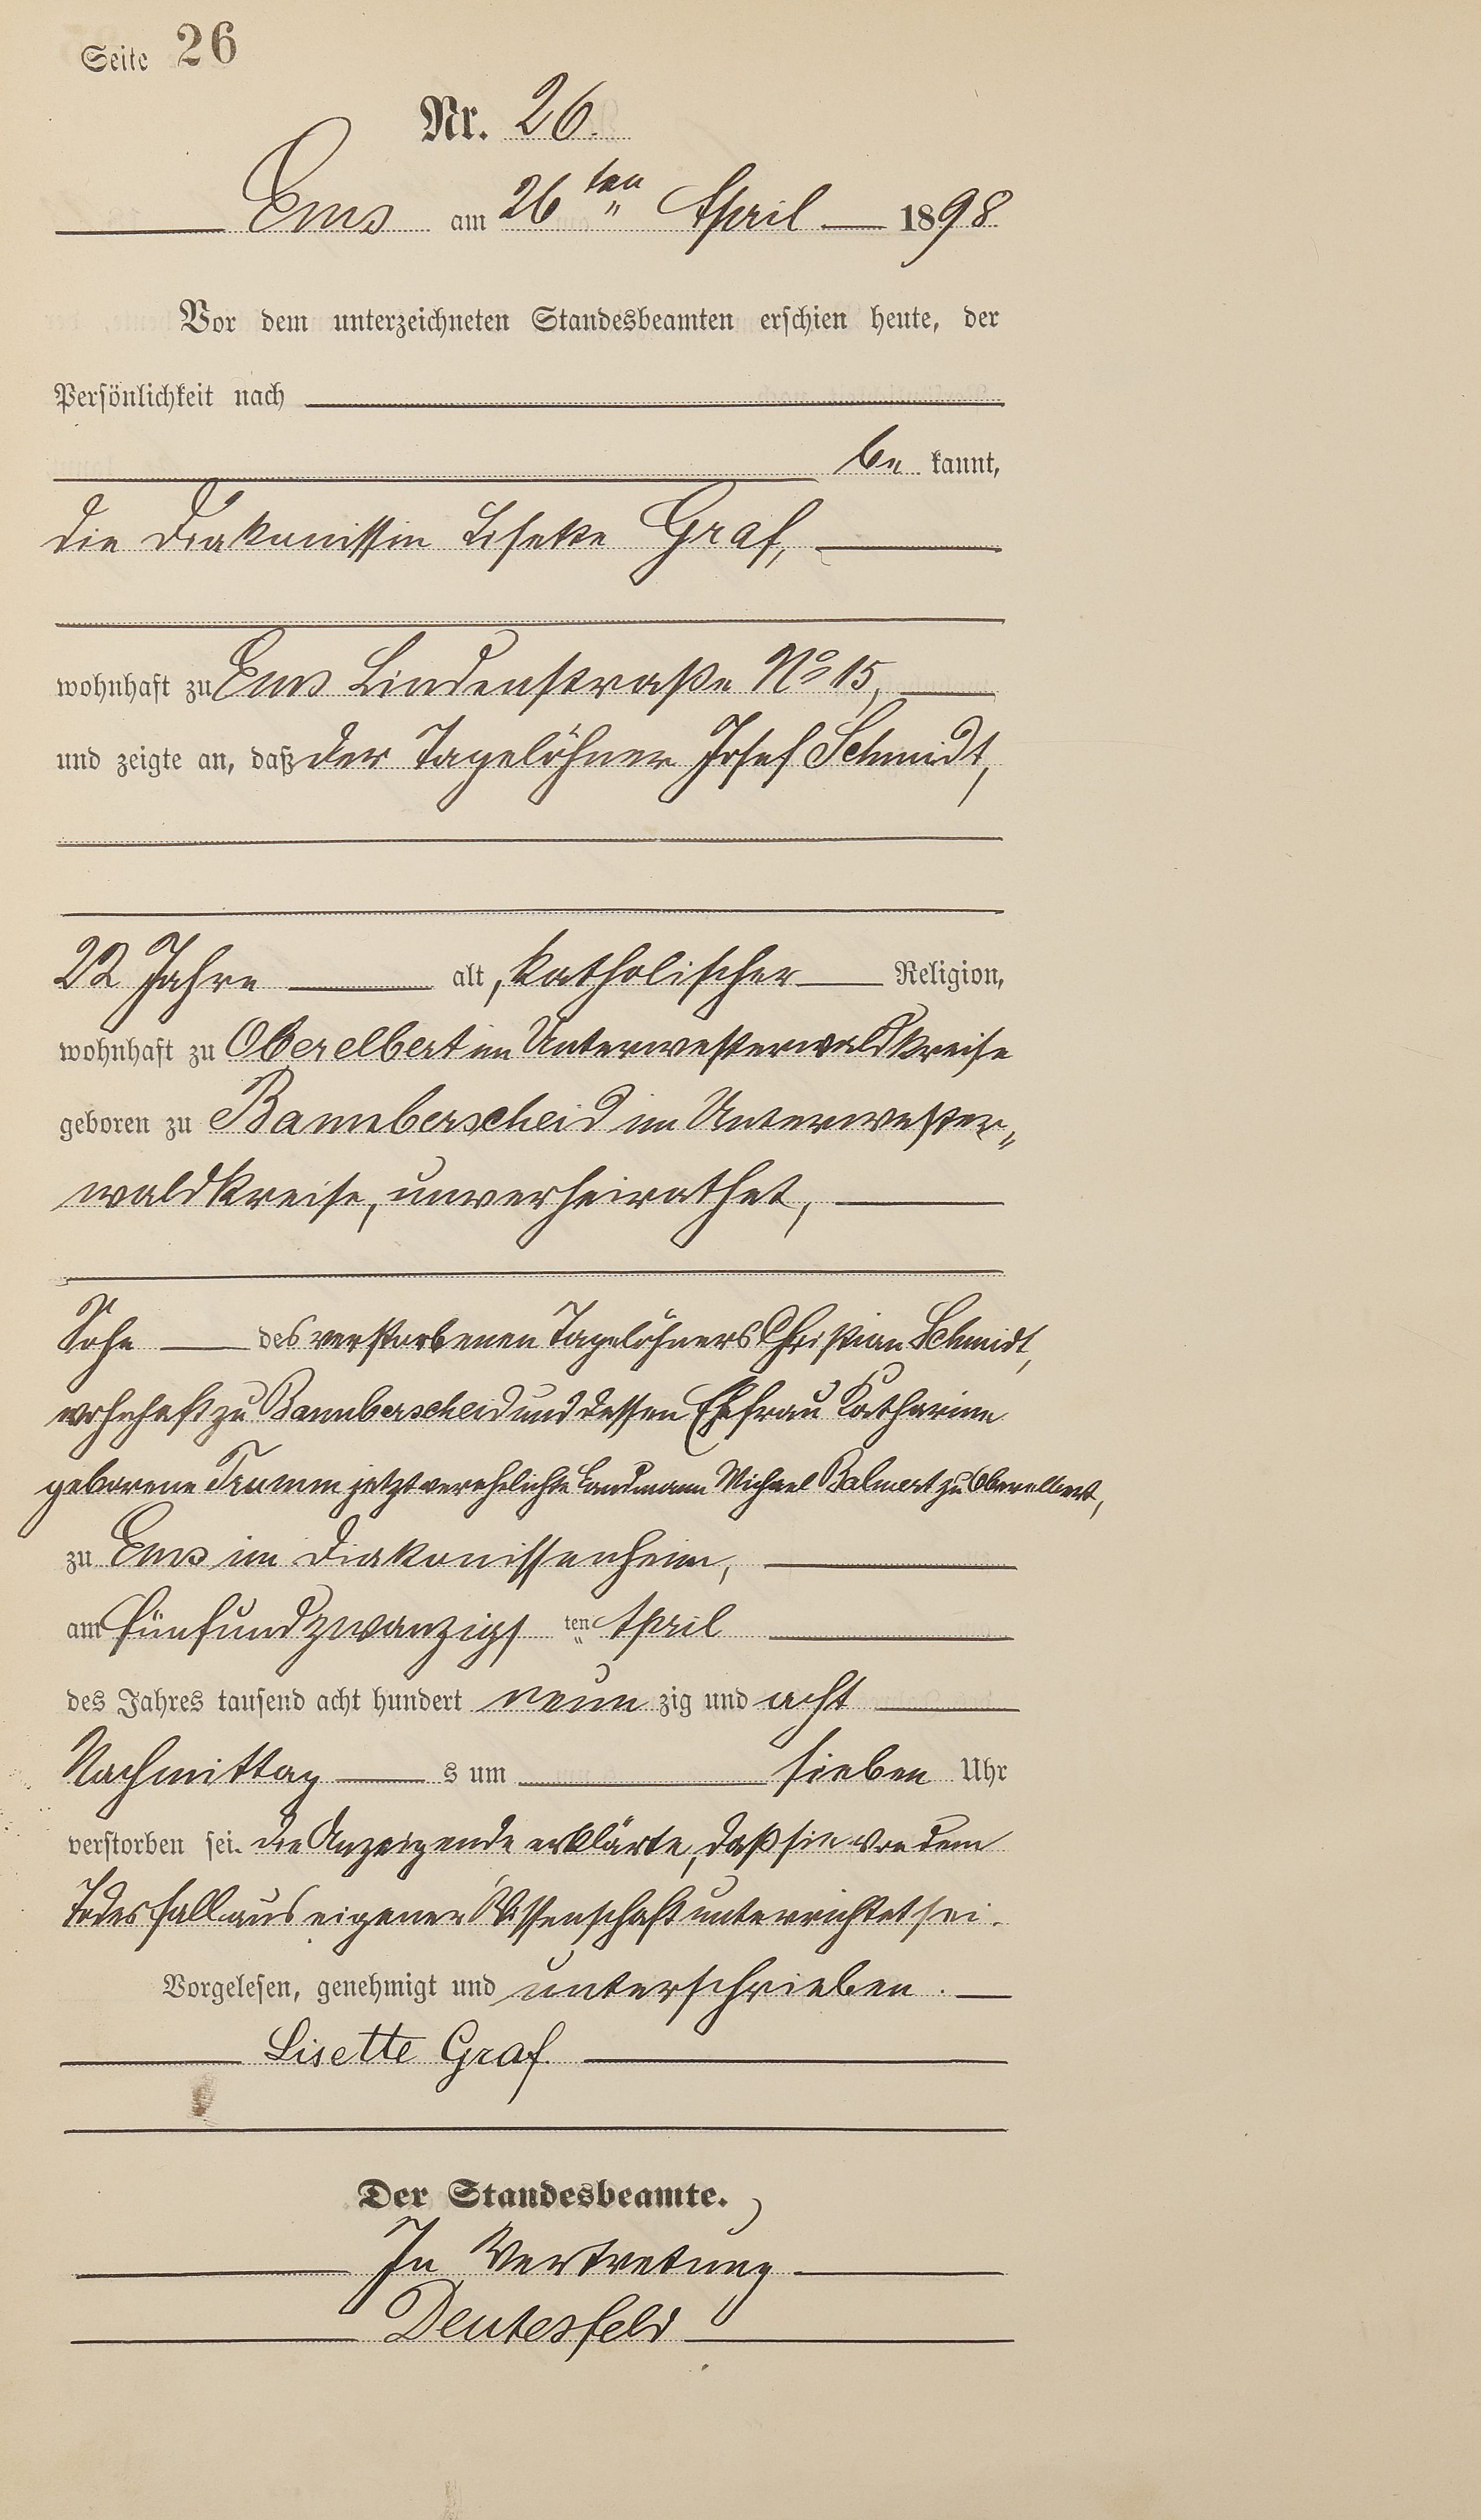 Seite 26
Nr. 26.
Ems am 26ten April 1898
Vor dem unterzeichneten Standesbeamten erschien heute, der
Persönlichkeit nach
be kannt,
die Diakonissin Lisette Graf,
wohnhaft zu Ems Lindenstraße No 15,
und zeigte an, daß der Tagelöhner Josef Schmidt,
22 Jahre alt, katholischer Religion,
wohnhaft zu Oberelbert im Unterwesterwaldkreise
geboren zu Bannberscheid im Unterwester„
waldkreise, unverheirathet,
Sohn des verstorbenen Tagelöhners Christian Schmidt,
wohnhaft zu Bannberscheid und dessen Ehefrau Katharina
geborene jetzt verehelichte Landmann Michael Balmert zu Oberelbert,
zu Ems im Diakonissenheim,
am fünfundzwanzigs ten April
des Jahres tausend acht hundert neun zig und acht
Nachmittag s um sieben Uhr
verstorben sei. die Anzeigende erklärte, daß sie von dem
Todesfall aus eigener Wissenschaft unterrichtet sei.
Vorgelesen, genehmigt und unterschrieben.
Lisette Graf
Der Standesbeamte.
In Vertretung
Deutesfeld